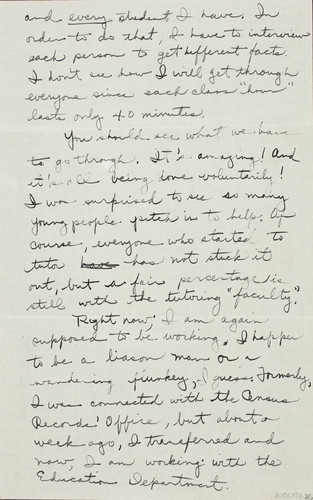 and every student I have. In
order to do that, I have to interview
each person to get different facts.
I don't see how I will get through
everyone since each class "hour"
lasts only 40 minutes.
You should see what we have
to go through. It's amazing! And
it's all being done voluntarily!
I was surprised to see so many
young people pitch in to help. Of
course, everyone who started to
tutor have has not stuck it
out, but a fair percentage is
still with the tutoring "faculty".
Right now, I am again
supposed to be working. I happen
to be a liason man or a
wandering flunkey, I guess. Formerly,
I was connected with the Census
Records' Office, but about a
week ago, I transferred and
now, I am working with the
Education Department.